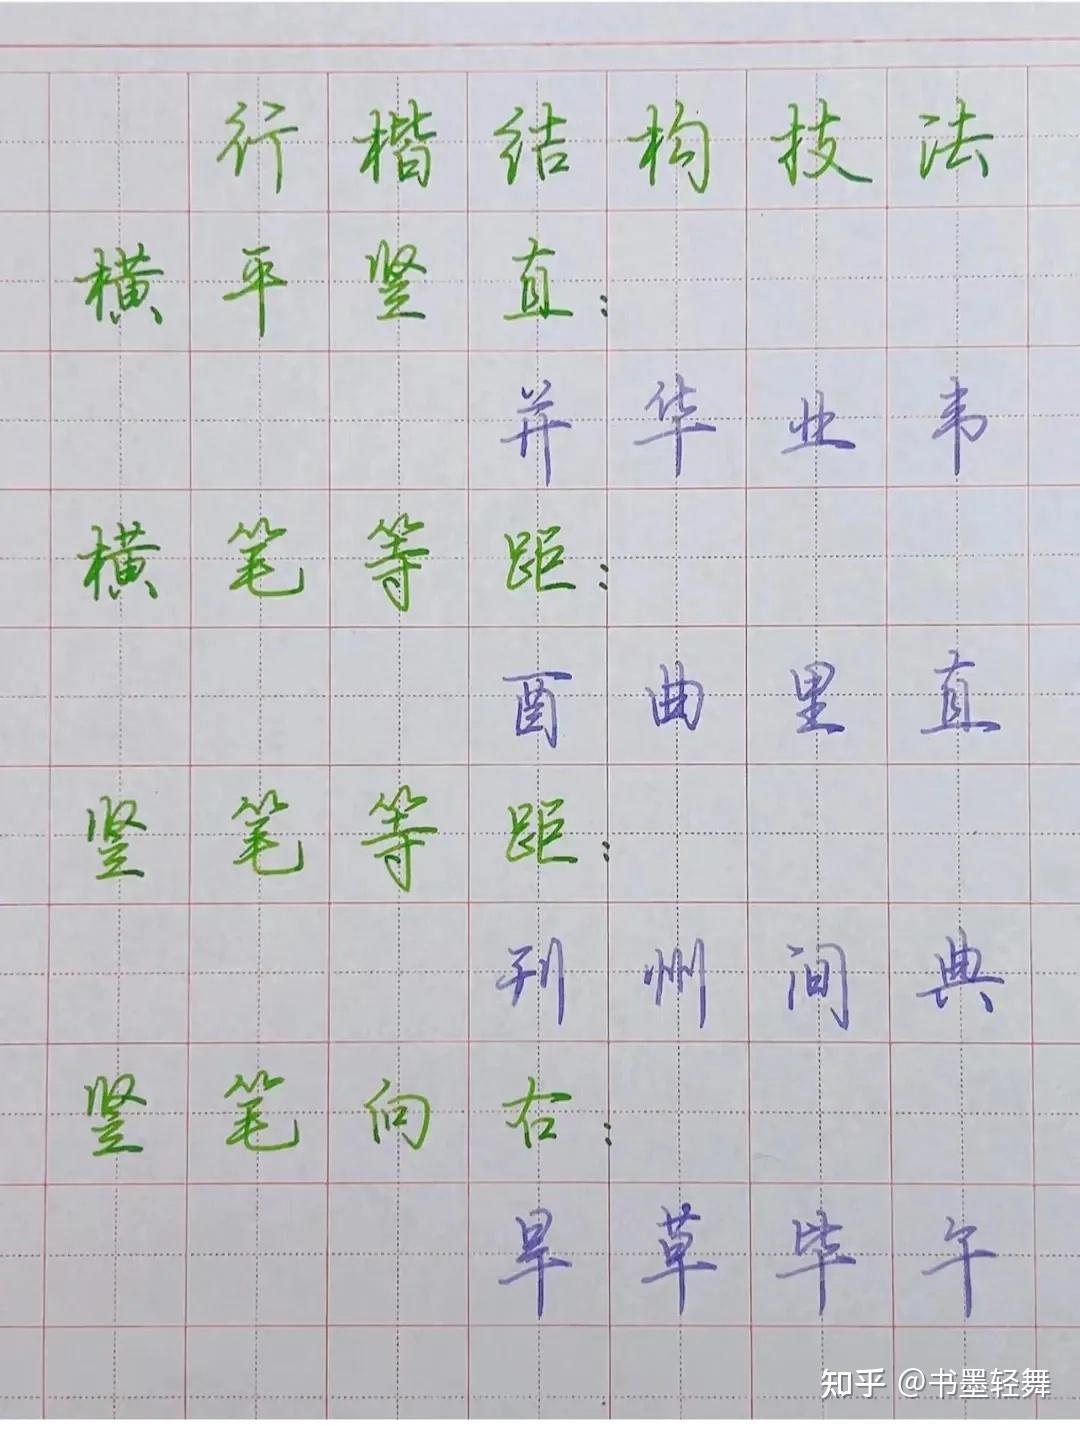 行楷结构技法
横平竖直:
并华业韦
横笔等距:
酉曲里直
竖笔等距:
刊州间典
竖笔向右:
旱草毕午
知乎 @书墨轻舞